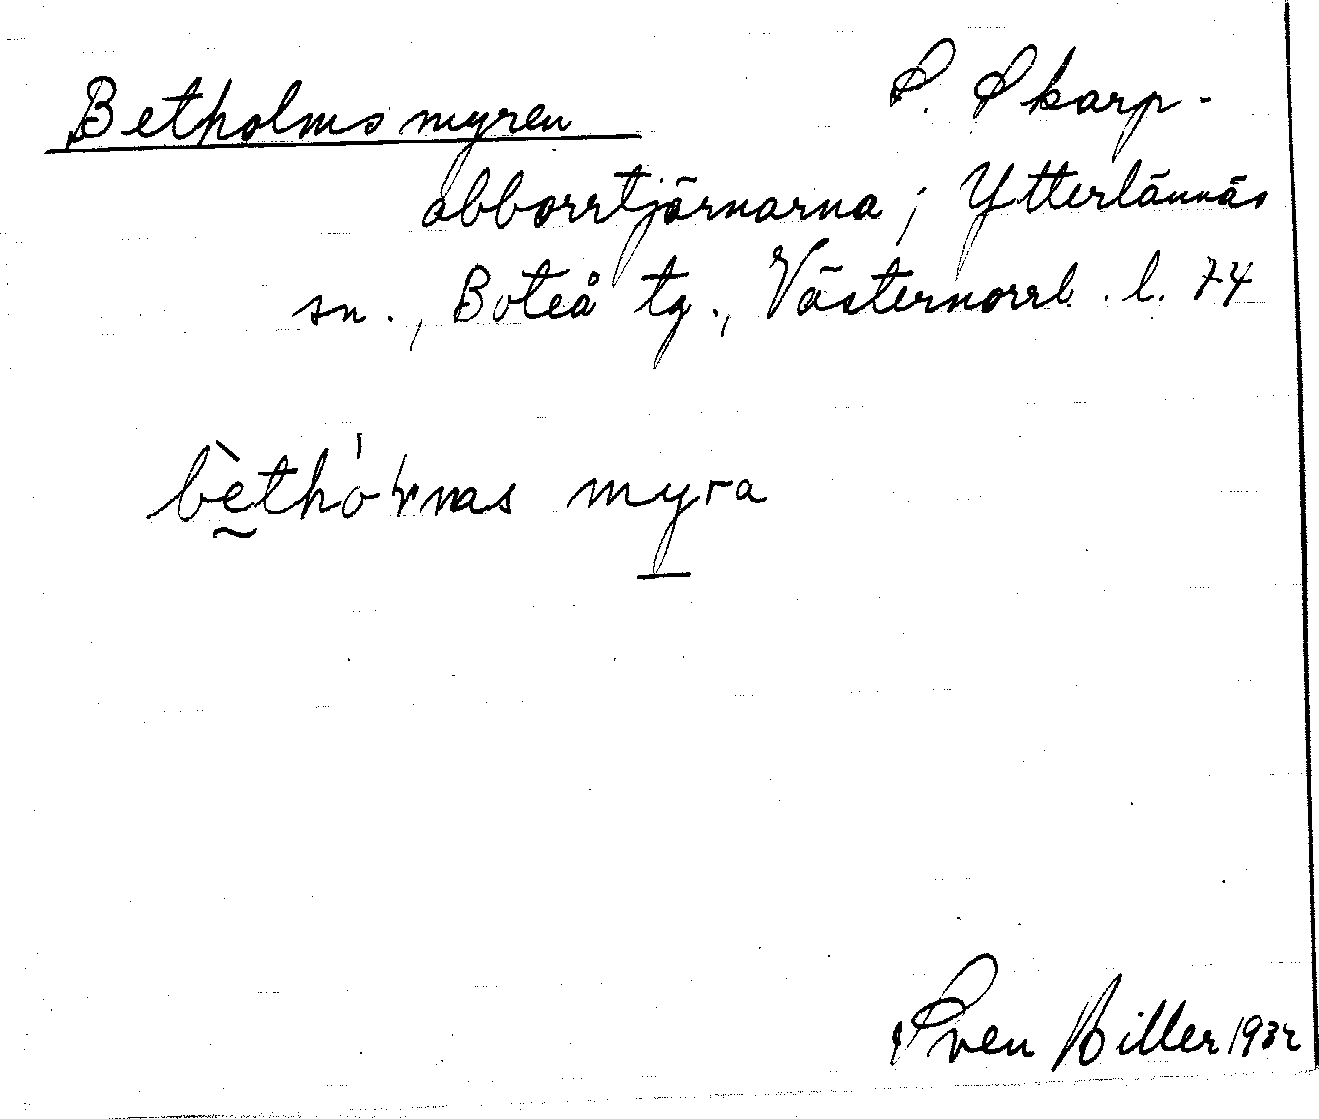 Betholmsmyren
S. Skarp-
abborrtjärnarna; Ytterlännäs
sn., Boteå tg., Västernorrl. l. 74
myra
Sven Hiller 1932